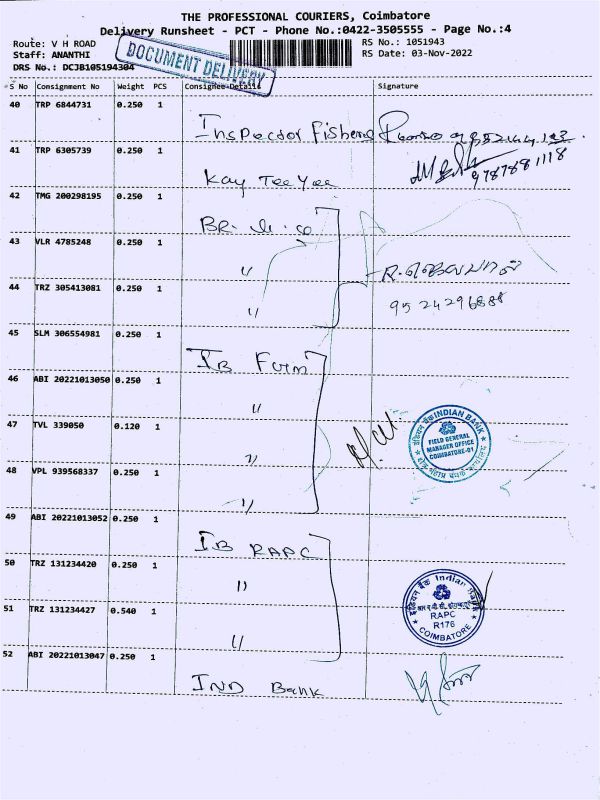 THE PROFESSIONAL COURIERS, Coimbatore
Delivery Runsheet - PCT - Phone No.:0422-3505555 - Page No.:4
Route: V H ROAD
Staff: ANANTHI
DRS No.: DCJB105194304
DOCUMENT DELIVERY
RS No.: 1051943
RS Date: 03-Nov-2022
S No Consignment No Weight PCS Consignee Details Signature
40 TRP 6844731 0.250 1
Inspector Fisheries
41 TRP 6305739 0.250 1
Kay Tee Yee
9787881118
42 TMG 200298195 0.250 1
43 VLR 4785248 0.250 1
"
44 TRZ 305413081 0.250 1
"
9524296888
45 SLM 306554981 0.250 1
IB
46 ABI 20221013050 0.250 1
"
47 TVL 339050 0.120 1
"
INDIAN BANK
FIELD GENERAL
MANAGER OFFICE
COIMBATORE-01
48 VPL 939568337 0.250 1
"
49 ABI 20221013052 0.250 1
IB RAPC
50 TRZ 131234420 0.250 1
"
इंडियन बैंक Indian
RAPC
R176
COIMBATORE
51 TRZ 131234427 0.540 1
"
52 ABI 20221013047 0.250 1
IND Bank